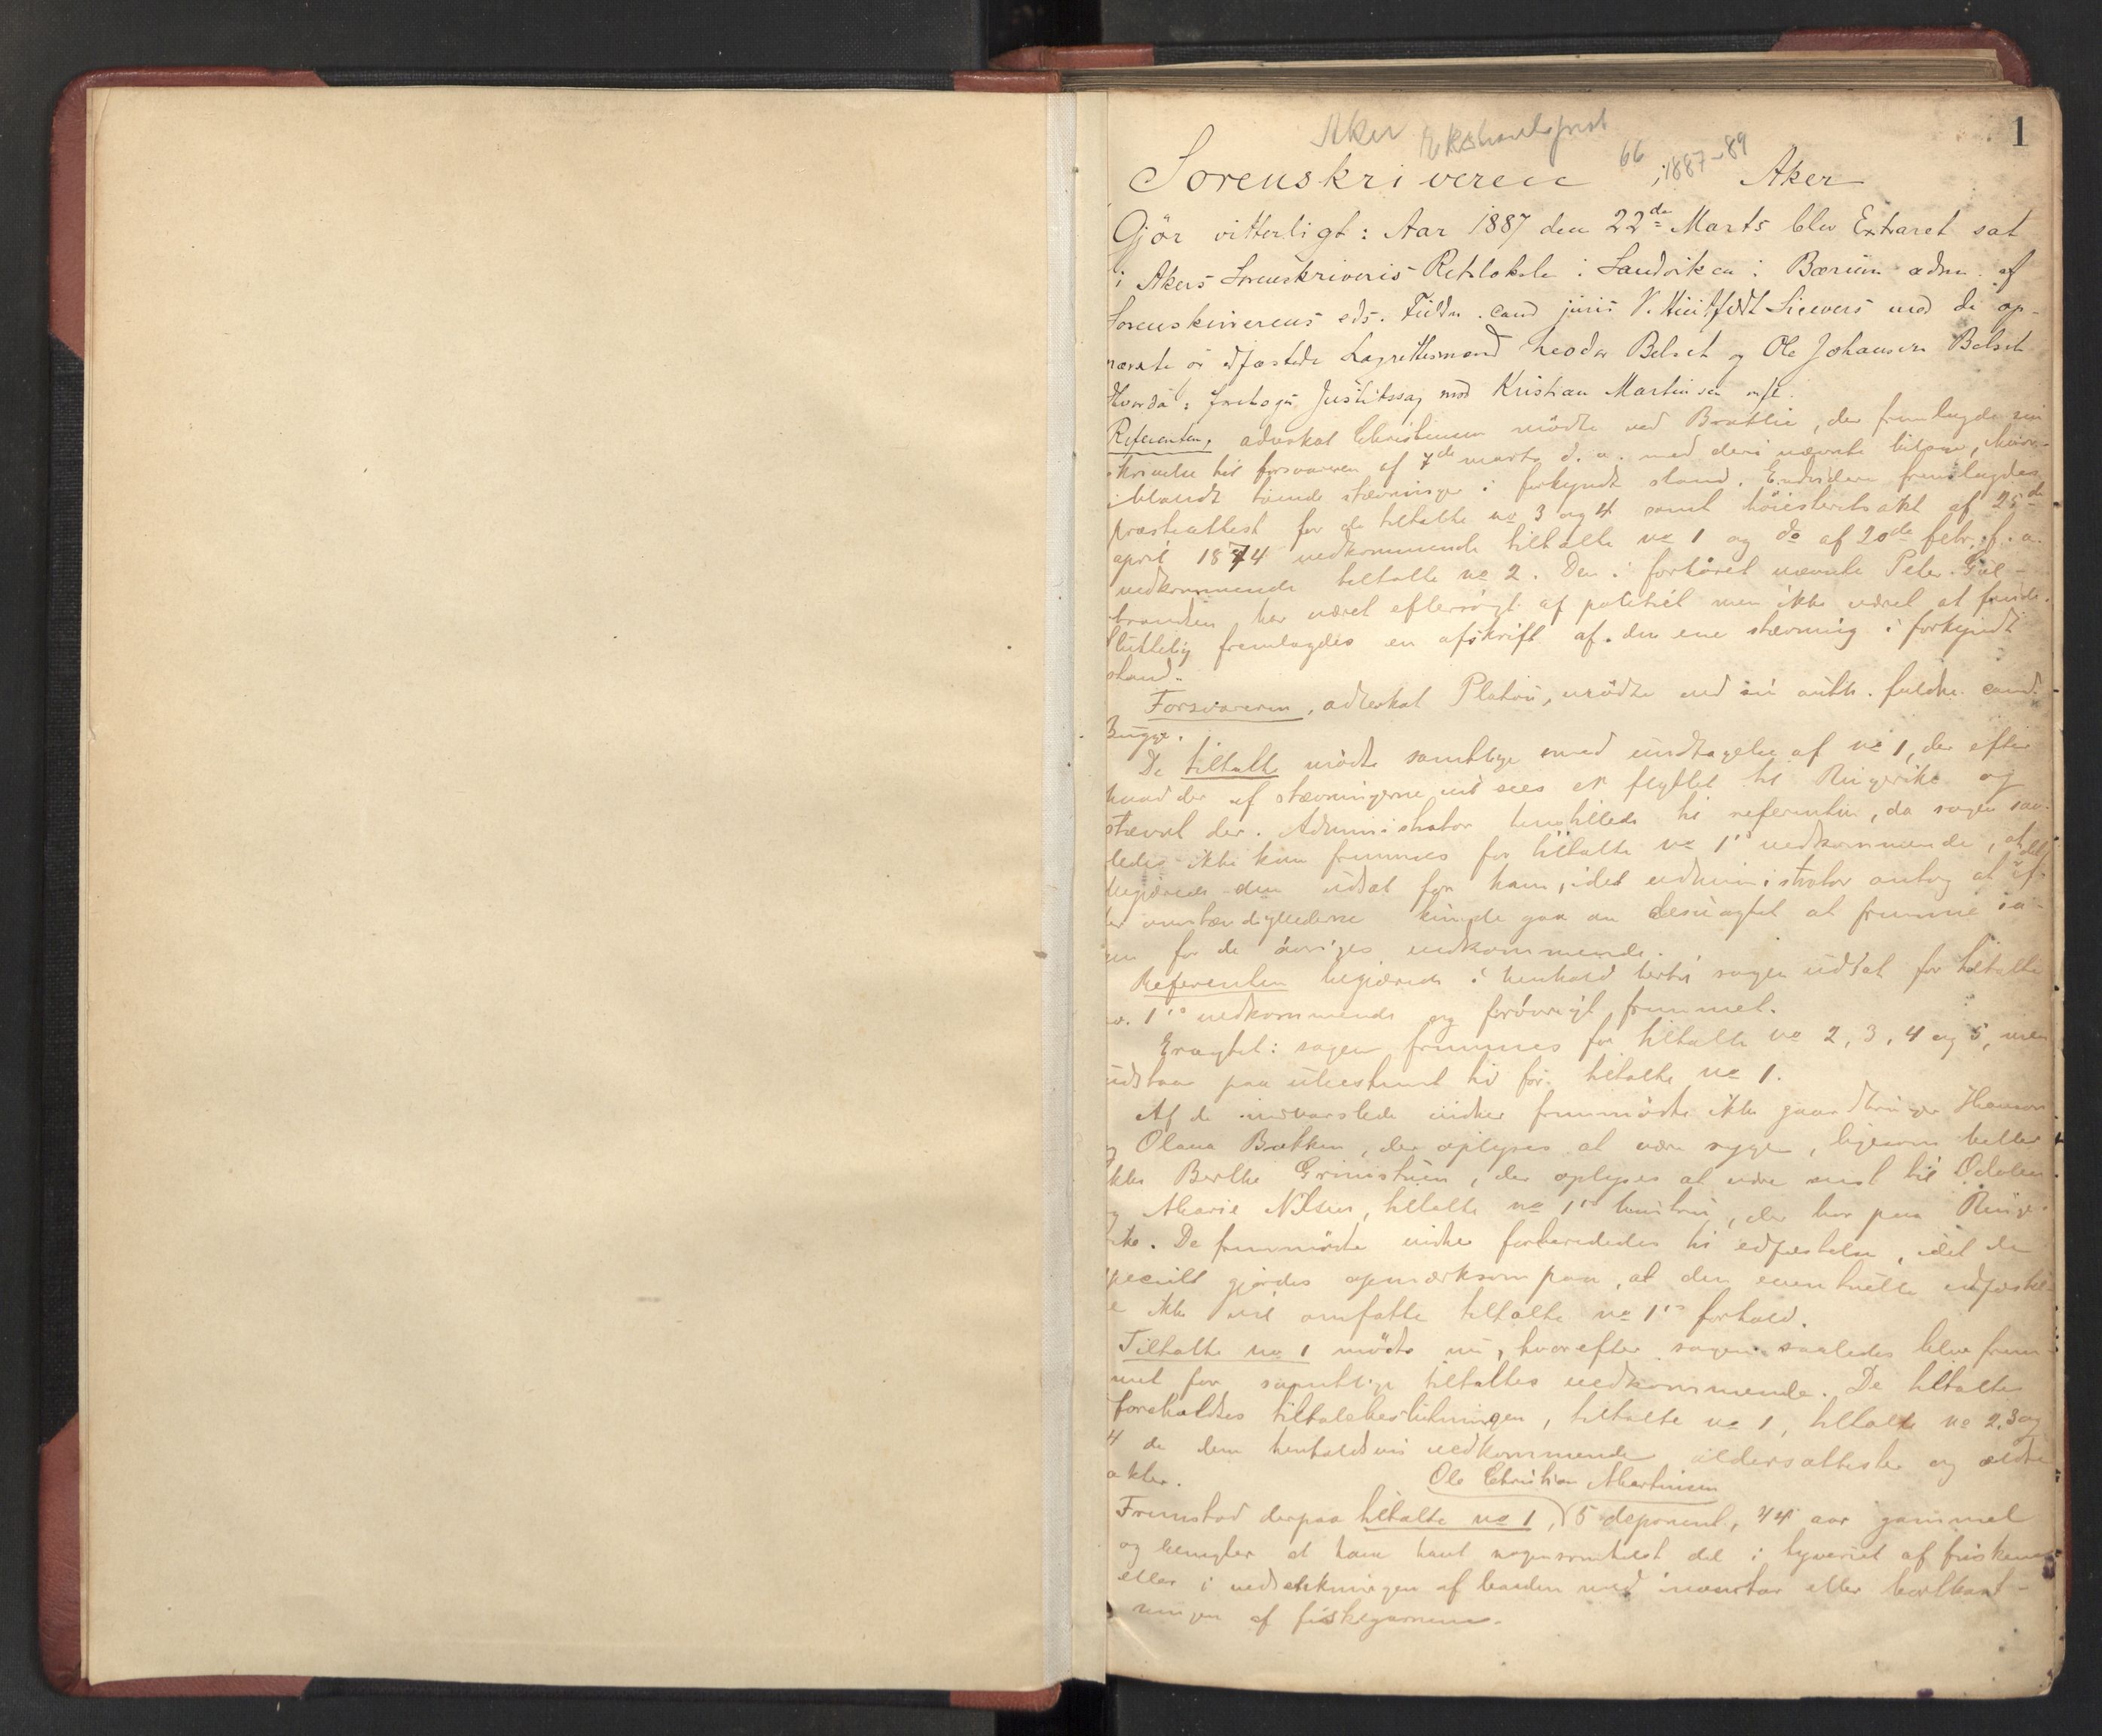 1
Aker
66 1887-89
Sorenskriveren i Aker
Gjör vitterligt: Aar 1887 den 22de Marts blev Extraret sat
i Akers Sorenskriveris Retslokale i Sandviken i Bærum adm. af
Sorenskriverens eds. Fuldm. cand juris V. Huitfeldt Sievers med de op-
nævnte og edfæstede Lagrettesmænd Theodor Belset og Ole Johansen Belset
Hvorda: foretoges Justitssag mod Kristian Martinsen m/fl.
Referenten, advokat Christensen mödte ved Brathlie, der fremlagde sin
skrivelse til forsvareren af 7de marts d. a. med deri nævnte bilage, hvor-
iblandt tvende stævninger i forkyndt stand. Endvidere fremlagdes
præsteattest for de tiltalte no 3 og 4 samt höiesteretsakt af 25de
april 1874 vedkommende tiltalte no 1 og do af 20de febr. f. a.
vedkommende tiltalte no 2. Den i forhöret nævnte Peter Gul-
brandsen har været eftersögt af politiet men ikke været at finde.
Sluttelig fremlagdes en afskrift af den ene stævning i forkyndt
stand.
Forsvareren, advokat Platou, mödte ved sin auth. fuldm. cand.
Bugge.
De tiltalte mödte samtlige med undtagelse af no 1, der efter
hvad der af stævningerne vil sees er flyttet til Ringerike og
stævnet der. Administrator henstillede til referenten, da sagen saa-
ledes ikke kan fremmes for tiltalte no 1's vedkommende, at det
begjæredes den udsat for ham, idet administrator antog at ef-
ter omstændighederne kunde gaa an desuagtet at fremme sa-
gen for de övriges vedkommende.
Referenten begjærede i henhold hertil sagen udsat for tiltalte
no. 1's vedkommende og forövrigt fremmet.
Eragtet: sagen fremmes for tiltalte no 2, 3, 4 og 5, men
udstaar paa ubestemt tid for tiltalte no 1.
Af de indvarslede vidner fremmödte ikke gaardbruger Hansen
og Olava Bakken, der oplyses at være syge, ligesom heller
ikke Berthe Grinistuen, der oplyses at være reist til Odalen
og Marie Nilsen, tiltalte no 1's hustru, der bor paa Ringe-
rike. De fremmödte vidner forberededes til edfæstelse, idet de
specielt gjordes opmærksom paa, at den eventuelle edfæstel-
se ikke vil omfatte tiltalte no 1's forhold.
Tiltalte no 1 mödte nu, hvorefter sagen saaledes blev frem-
met for samtlige tiltaltes vedkommende. De tiltalte
foreholdtes tiltalebeslutningen, tiltalte no 1, tiltalte no 2, 3 og
4 de dem henholdsvis vedkommende aldersattester og ældre
akter.
Ole Christian Martinsen
Fremstod derpaa tiltalte no 1, 5 deponent, 44 aar gammel
og benegter at have havt nogensomhelst del i tyveriet af fiskene
eller i nedsænkningen af baaden med inventar eller bortkast-
ningen af fiskegarnene.